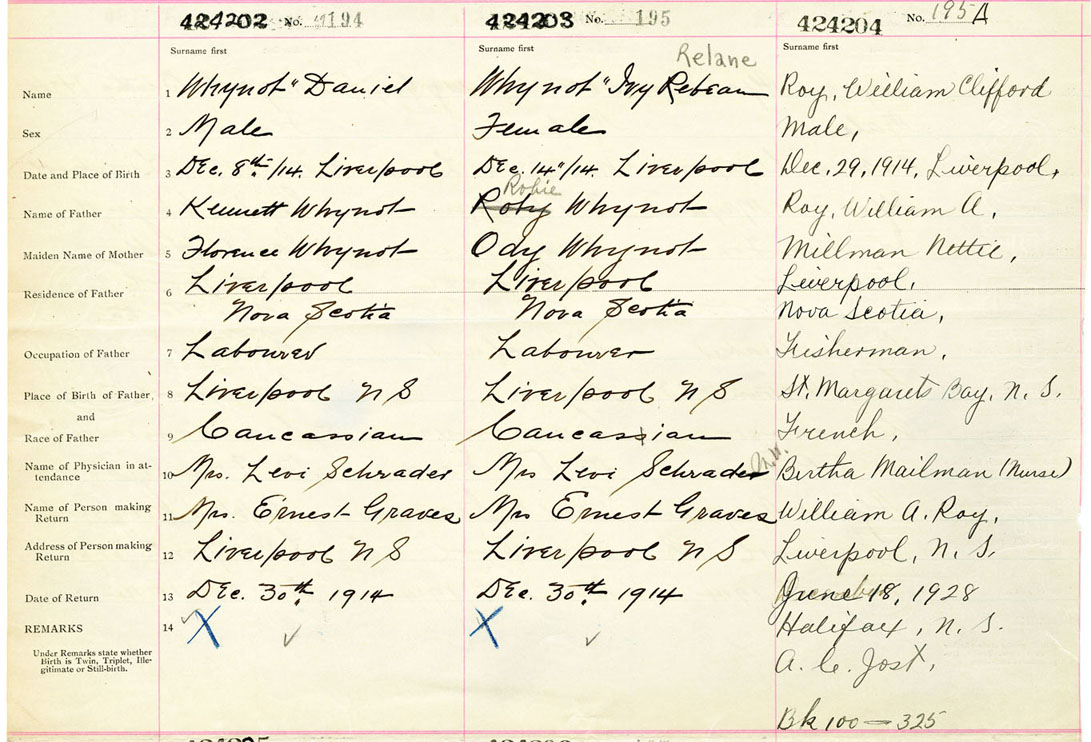 424202 No. 194
424203 No. 195
424204 No. 195 A
Surname first
Surname first
Surname first
Relane
Name 1 Whynot " Daniel
Whynot " Ivy Rebean
Roy, William Clifford
Sex 2 Male
Female
Male,
Date and Place of Birth 3 Dec. 8th/14. Liverpool
Dec. 14"/14. Liverpool
Dec. 29, 1914, Liverpool,
Robie
Name of Father 4 Kennett Whynot
Roby Whynot
Roy, William A,
Maiden Name of Mother 5 Florence Whynot
Ody Whynot
Millman Nettie,
Residence of Father 6 Liverpool
Nova Scotia
Liverpool
Nova Scotia
Liverpool,
Nova Scotia,
Occupation of Father 7 Labourer
Labourer
Fisherman,
Place of Birth of Father, 8 Liverpool N S
Liverpool N S
St. Margarets Bay, N. S.
and
Race of Father 9 Caucassian
Caucassian
French,
Name of Physician in at-
tendance 10 Mrs. Levi Schrader
Mrs Levi Schrader
Bertha Mailman (Nurse)
Name of Person making
Return 11 Mrs. Ernest Graves
Mrs Ernest Graves
William A. Roy,
Address of Person making
Return 12 Liverpool N S
Liverpool N S
Liverpool, N. S.
Date of Return 13 Dec. 30th. 1914
Dec. 30th. 1914
June 18, 1928
REMARKS 14 X
X
Halifax, N. S.
Under Remarks state whether
Birth is Twin, Triplet, Ille-
gitimate or Still-birth.
A. C. Jost,
Bk 100 - 325